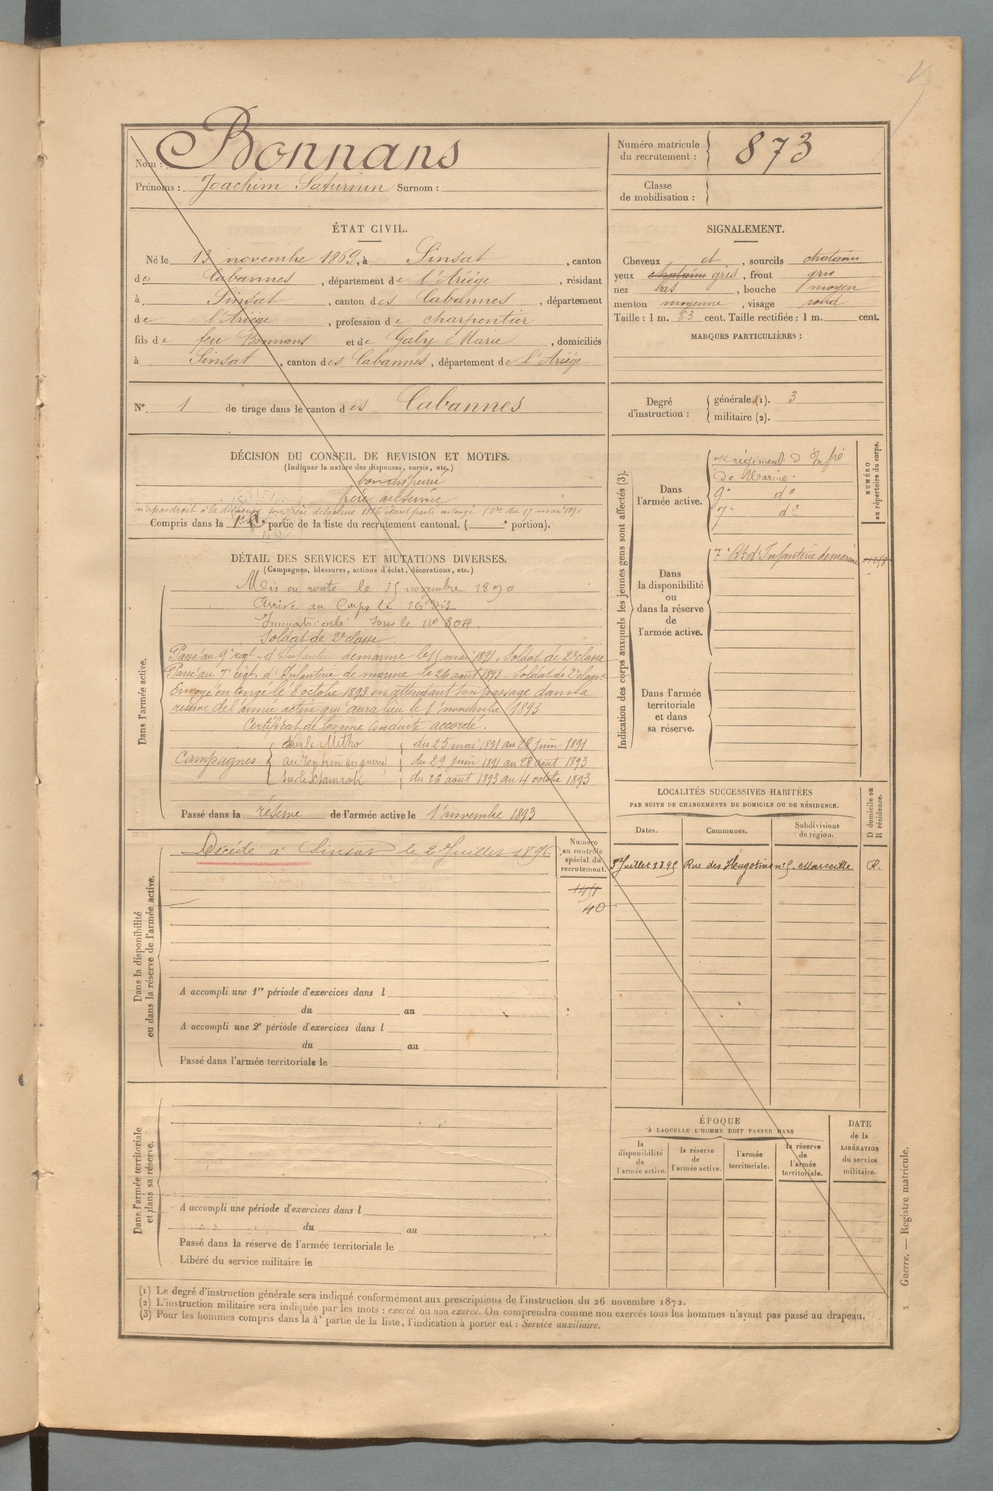 Nom : Bonnans
Prénoms : Joachim Saturnin Surnom :
Numéro matricule du recrutement : 873
Classe de mobilisation :
ÉTAT CIVIL.
Né le 13 novembre 1869, à Sinsat, canton
des Cabannes, département de l'Ariége, résidant
à Sinsat, canton des Cabannes, département
de l'Ariége, profession de charpentier
fils de feu Bonnans et de Gaby Marie, domiciliés
à Sinsat, canton des Cabannes, département de l'Ariége
N° 1 de tirage dans le canton des Cabannes
SIGNALEMENT.
Cheveux et, sourcils chatain
yeux chatain gris, front gris
nez bas, bouche moyen
menton moyenne, visage rond
Taille : 1 m. 63 cent. Taille rectifiée : 1 m. cent.
MARQUES PARTICULIÈRES :
Degré d'instruction :
générale (1). 3
militaire (2).
DÉCISION DU CONSEIL DE REVISION ET MOTIFS.
(Indiquer la nature des dispenses, sursis, etc.)
bon dispensé
frère au service
Compris dans la 1e partie de la liste du recrutement cantonal. ( e portion).
DÉTAIL DES SERVICES ET MUTATIONS DIVERSES.
(Campagnes, blessures, actions d'éclat, décorations, etc.)
Dans l'armée active.
Mis en route le 15 novembre 1890
Arrivé au Corps le 16 dit
Immatriculé sous le n° 804.
Soldat de 2e classe.
Passé au 9e régt d'Infanterie de marine le 1 mai 1891. Soldat de 2e classe
Passé au 7e régt d'Infanterie de marine le 26 août 1893. Soldat de 2e classe
Envoyé en congé le 8 octobre 1893 en attendant son passage dans la
réserve de l'armée active qui aura lieu le 1er novembre 1893
Certificat de bonne conduite accordé.
Campagnes
sur le Mytho du 25 mai 1891 au 28 juin 1891
au Tonkin en guerre du 29 juin 1891 au 28 août 1893
sur le Shamrok du 29 août 1893 au 4 octobre 1893
Passé dans la réserve de l'armée active le 1er novembre 1893
Indication des corps auxquels les jeunes gens sont affectés (3).
NUMÉRO au répertoire du corps.
Dans l'armée active.
régiment d'Infrie
de Marine.
9e do
7e do
Dans la disponibilité ou dans la réserve de l'armée active.
7e Rt d'Infanterie de marine
Dans l'armée territoriale et dans sa réserve.
LOCALITÉS SUCCESSIVES HABITÉES
PAR SUITE DE CHANGEMENTS DE DOMICILE OU DE RÉSIDENCE.
Dates.
Communes.
Subdivisions de région.
D domicile ou R résidence.
Juillet 1895 Rue des Hugotins n° 5. Marseille R.
Dans la disponibilité ou dans la réserve de l'armée active.
Décédé à Sinsat le 2 Juillet 1896
Numéro au contrôle spécial du recrutement.
40
A accompli une 1re période d'exercices dans l
du au
A accompli une 2e période d'exercices dans l
du au
Passé dans l'armée territoriale le
ÉPOQUE
À LAQUELLE L'HOMME DOIT PASSER DANS
la disponibilité de l'armée active.
la réserve de l'armée active.
l'armée territoriale.
la réserve de l'armée territoriale.
DATE de la LIBÉRATION du service militaire.
Dans l'armée territoriale et dans sa réserve.
A accompli une période d'exercices dans l
du au
Passé dans la réserve de l'armée territoriale le
Libéré du service militaire le
Guerre. — Registre matricule.
(1) Le degré d'instruction générale sera indiqué conformément aux prescriptions de l'instruction du 26 novembre 1872.
(2) L'instruction militaire sera indiquée par les mots : exercé ou non exercé. On comprendra comme non exercés tous les hommes n'ayant pas passé au drapeau.
(3) Pour les hommes compris dans la 4e partie de la liste, l'indication à porter est : Service auxiliaire.